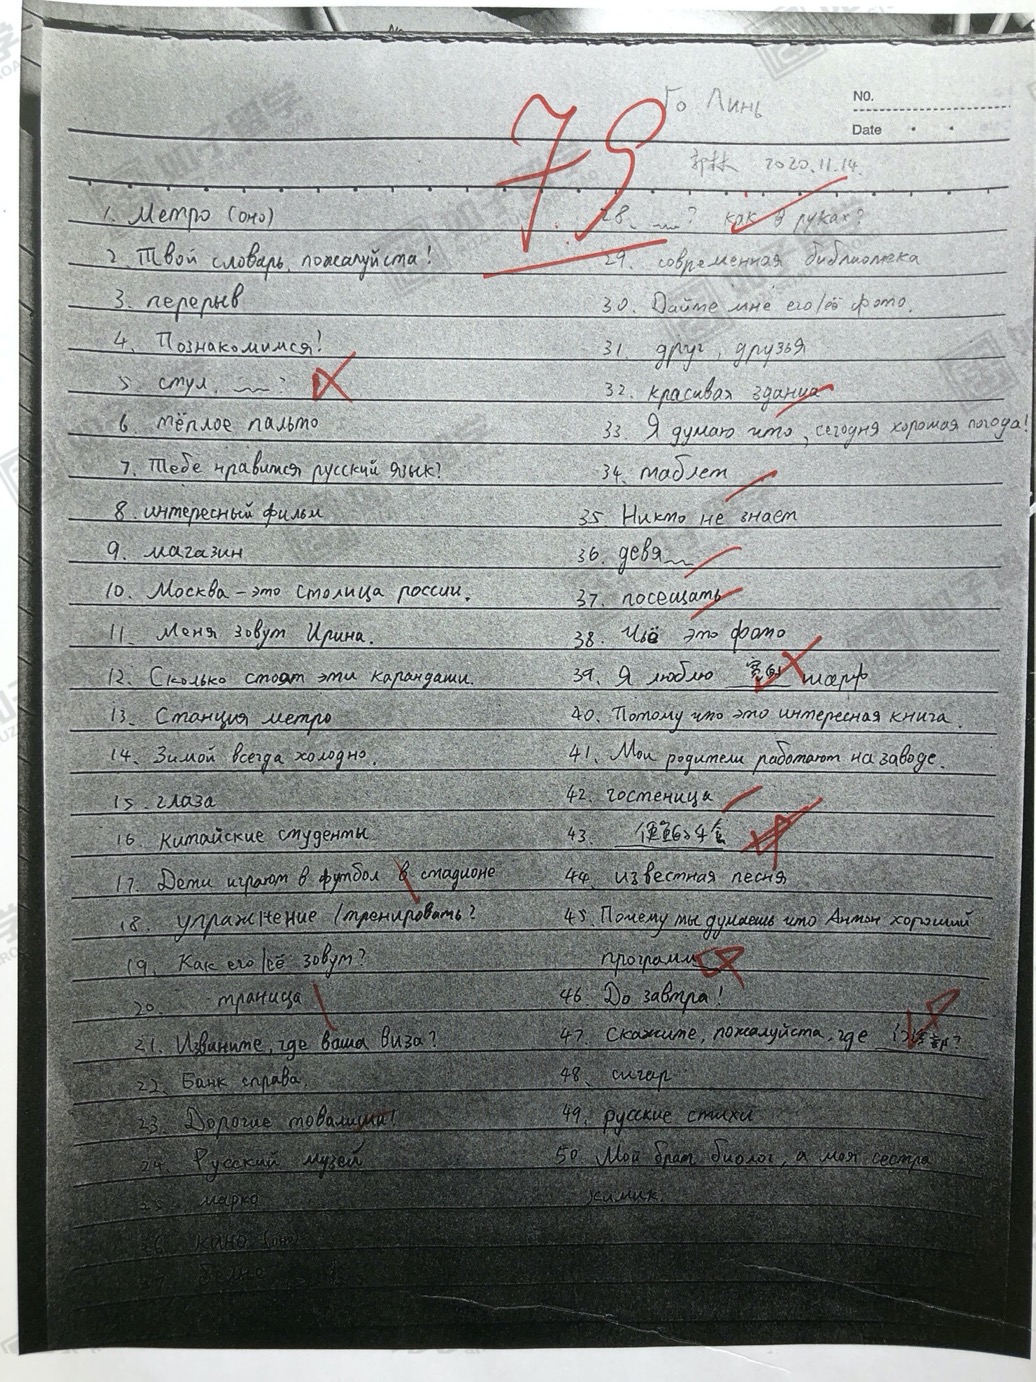 Го Линь
NO.
Date
郭林 2020.11.14.
79
1. Метро (оно)
2. Твой словарь, пожалуйста!
3. перерыв
4. Познакомимся!
5. стул. ?
6. тёплое пальто
7. Тебе нравится русский язык?
8. интересный фильм
9. магазин
10. Москва – это столица россии.
11. Меня зовут Ирина.
12. Сколько стоят эти карандаши.
13. Станция метро
14. Зимой всегда холодно.
15. глаза
16. китайские студенты
17. Дети играют в футбол в стадионе
18. упражнение (тренировать?
19. Как его/её зовут?
20. траница
21. Извините, где ваша виза?
22. Банк справа.
23. Дорогие товалищи!
24. Русский музей
25. марко
26. кино (оно)
27.
28. ? как в руках?
29. современная библиотека
30. Дайте мне его/её фото.
31. друг, друзья
32. красивая здания
33. Я думаю что, сегодня хорошая погода!
34. таблет
35 Никто не знает
36. девя
37. посещать
38. Чьё это фото
39. Я люблю 宽的 шарф
40. Потому что это интересная книга.
41. Мои родители работают на заводе.
42. гостеница
43.
44. известная песня
45. Почему ты думаешь что Антон хороший
программ
46. До завтра!
47. Скажите, пожалуйста, где ?
48. сигар
49. русские стихи
50. Мой брат биолог, а моя сестра
химик.